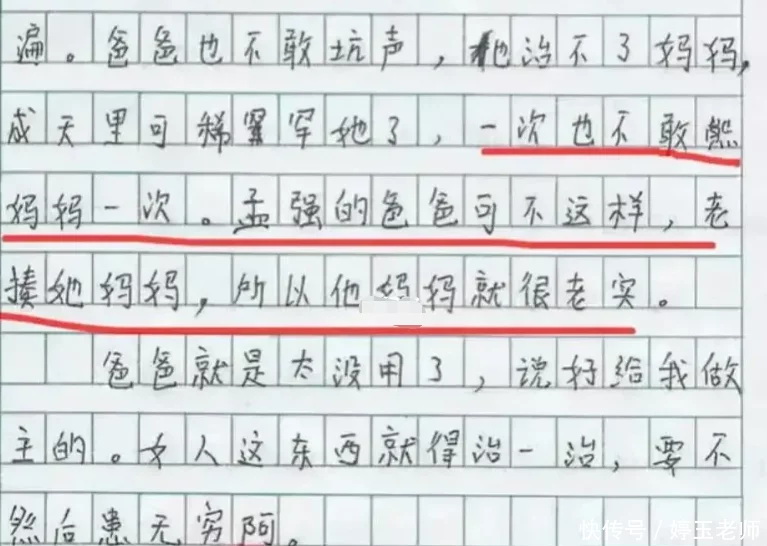 遍。爸爸也不敢坑声，他治不了妈妈，
成天里可稀罕她了，一次也不敢熊
妈妈一次。孟强的爸爸可不这样，老
揍她妈妈，所以他妈妈就很老实。
爸爸就是太没用了，说好给我做
主的。女人这东西就得治一治，要不
然后患无穷阿。
快传号／婷玉老师